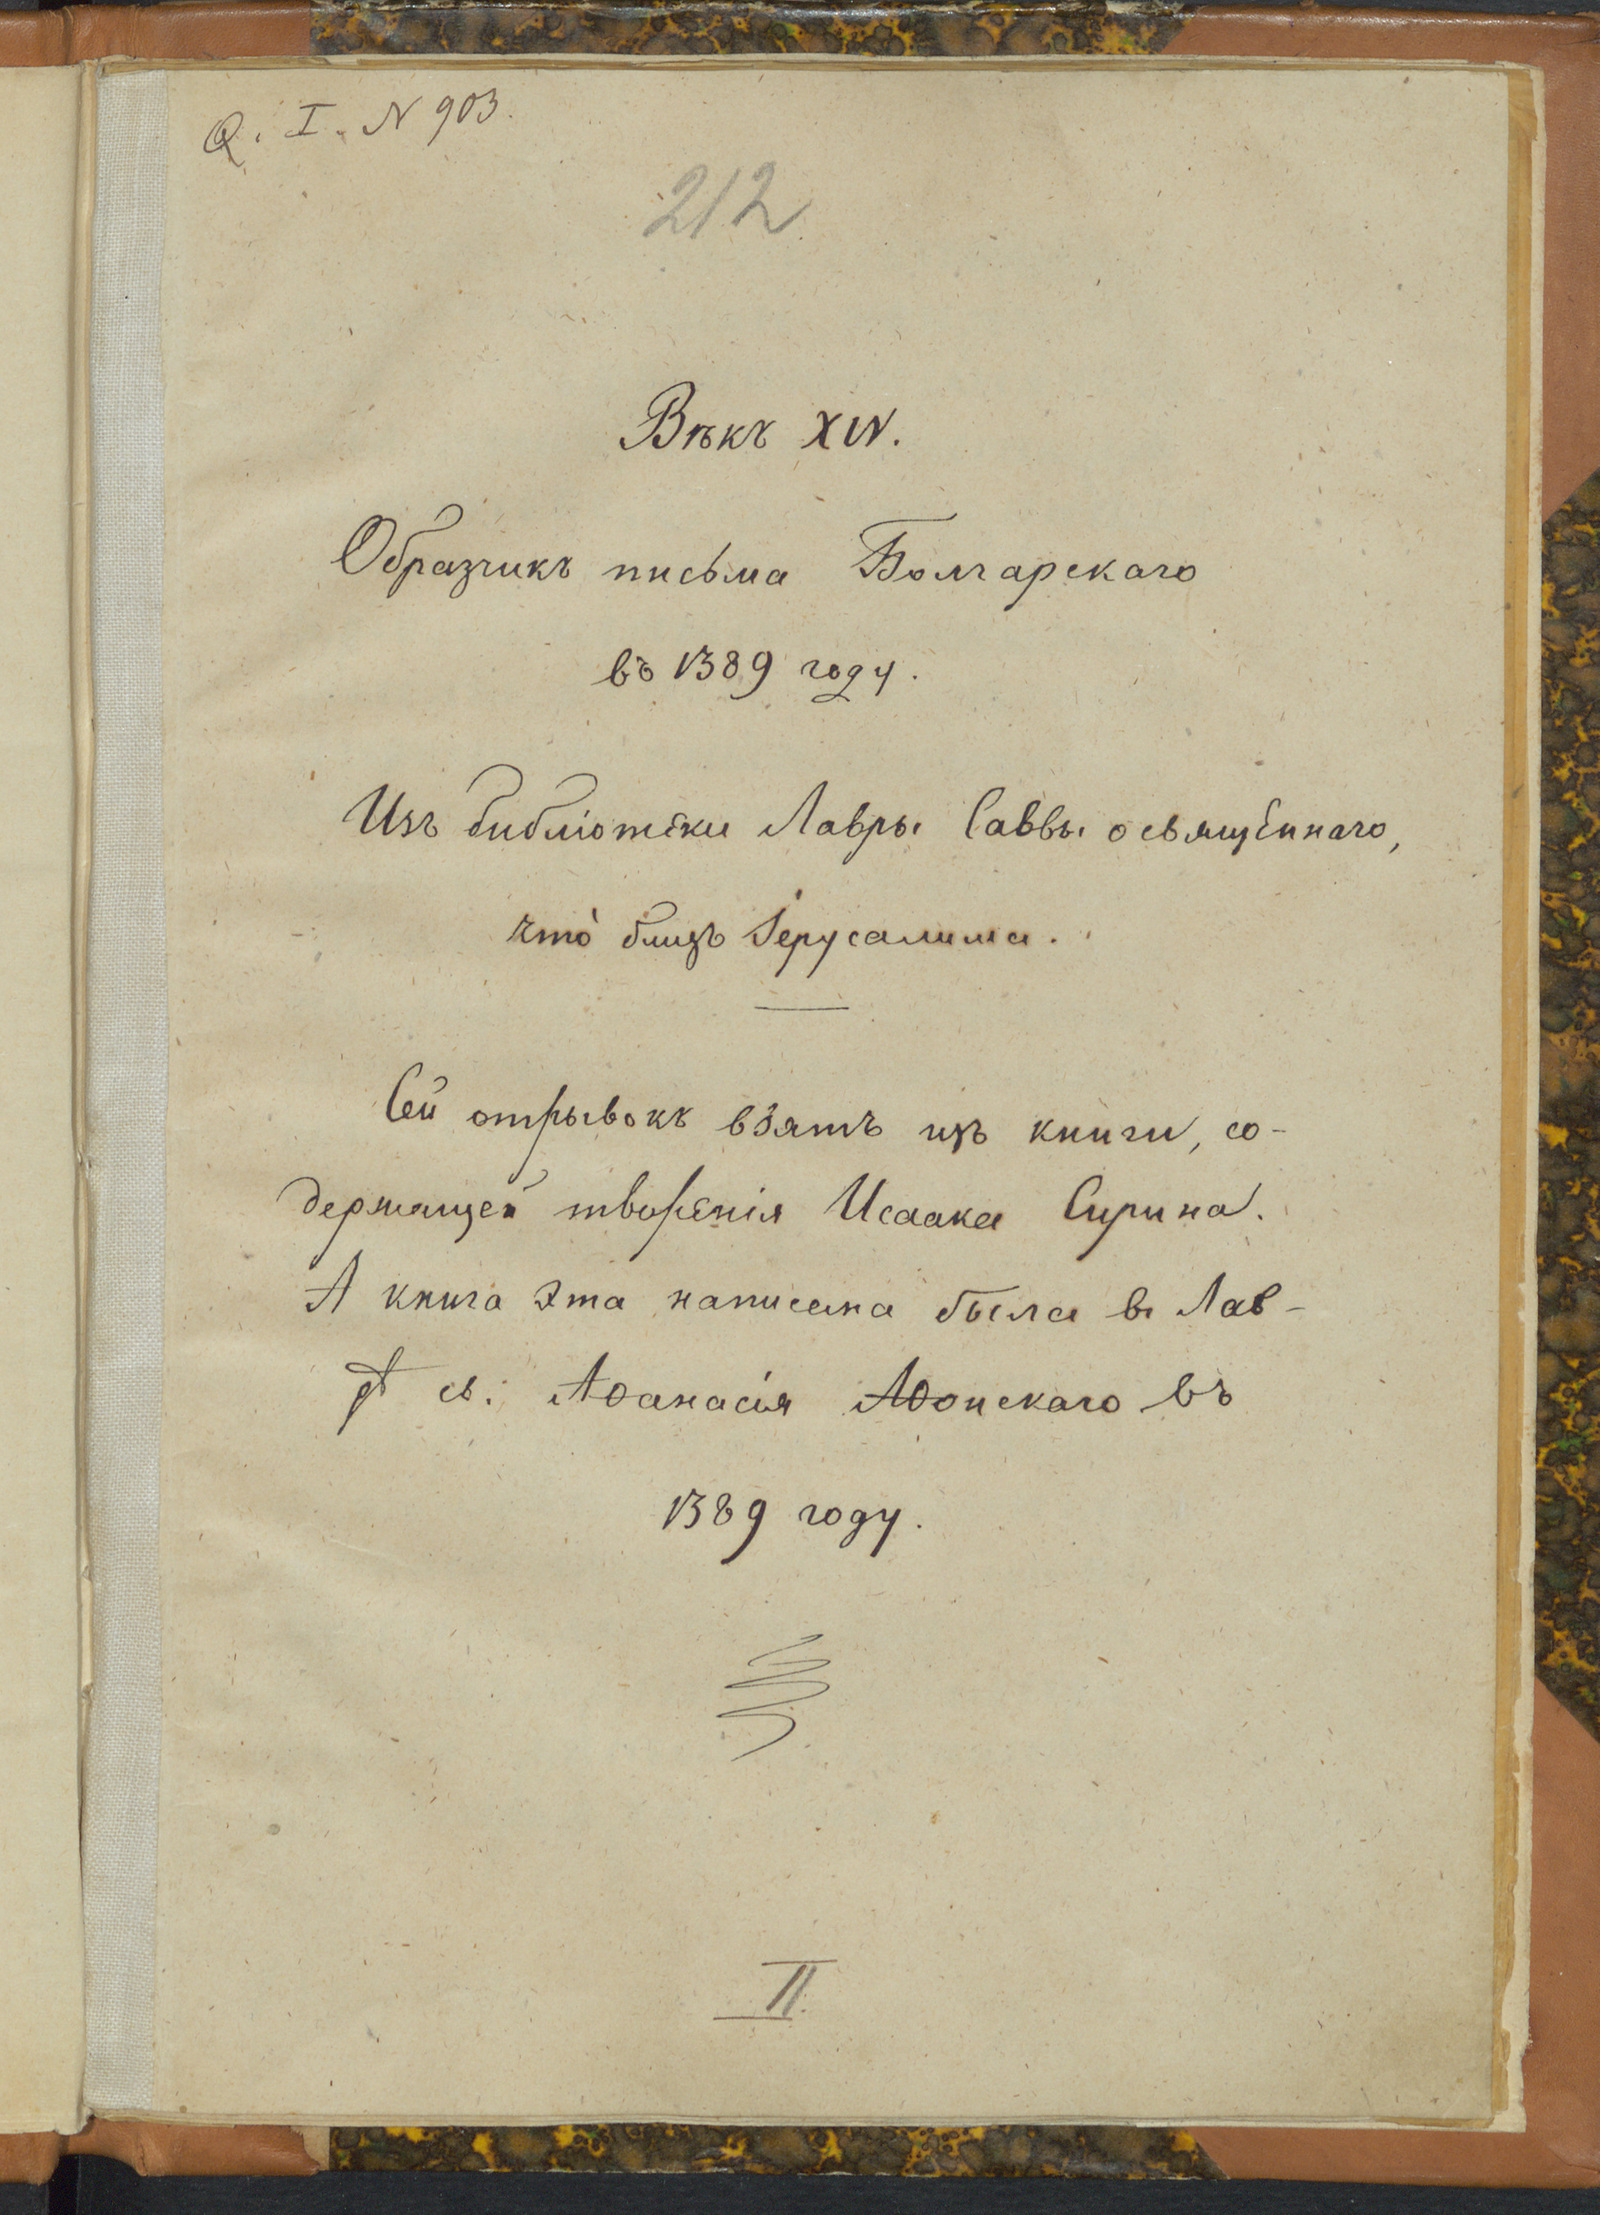 Q. I. N 903.
212
Вѣкъ XIV.
Образчикъ письма Болгарскаго
въ 1389 году.
Изъ библіотеки Лавры Саввы освященнаго,
что̀ близъ Іерусалима.
Сей отрывокъ взятъ изъ книги, со-
держащей творенія Исаака Сирина.
А книга эта написана была въ Лав-
рѣ св. Аѳанасія Аѳонскаго въ
1389 году.
II